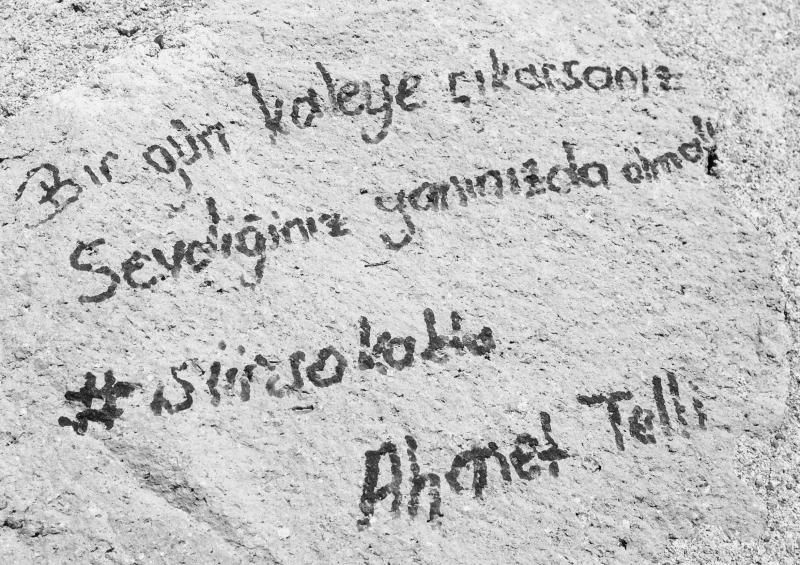 Bir gün kaleye çıkarsanız
Sevdiğiniz yanınızda olmalı
#siirsokakta
Ahmet Telli